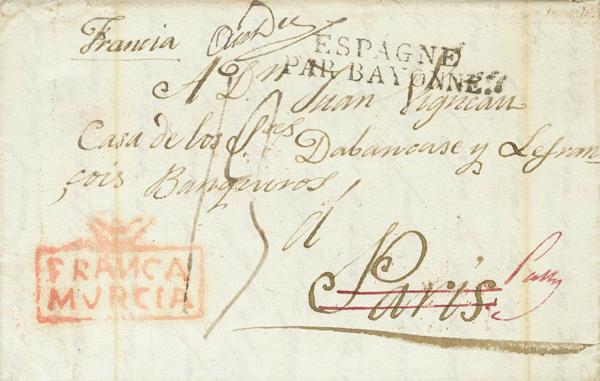 Francia
ESPAGNE
PAR BAYONNE
A Dn Juan Vigneau
Casa de los Sres Dabancase y Lefran=
çois Banqueros,
á
París
FRANCA
MVRCIA